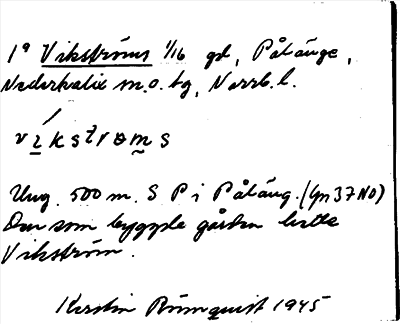 1ª Vikströms 1/16 gd, Pålänge,
Nederkalix m.o. tg, Norrb. l.
v i k s t r ө m s
Ung. 500 m. S P i Påläng. (Gn 37 NO)
Den som byggde gården hette
Vikström.
Kerstin Rönnquist 1945